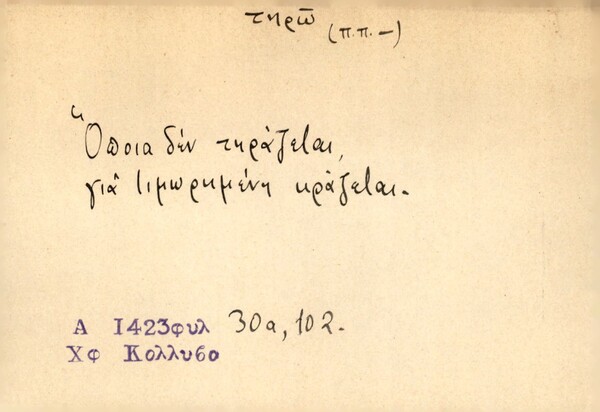 τηρῶ (π.π. -)
Ὅποια δέν τηράζεται,
γιὰ τιμωρημένη κράζεται.
Α 1423φυλ 30α, 102.
Χφ Κολλυβο